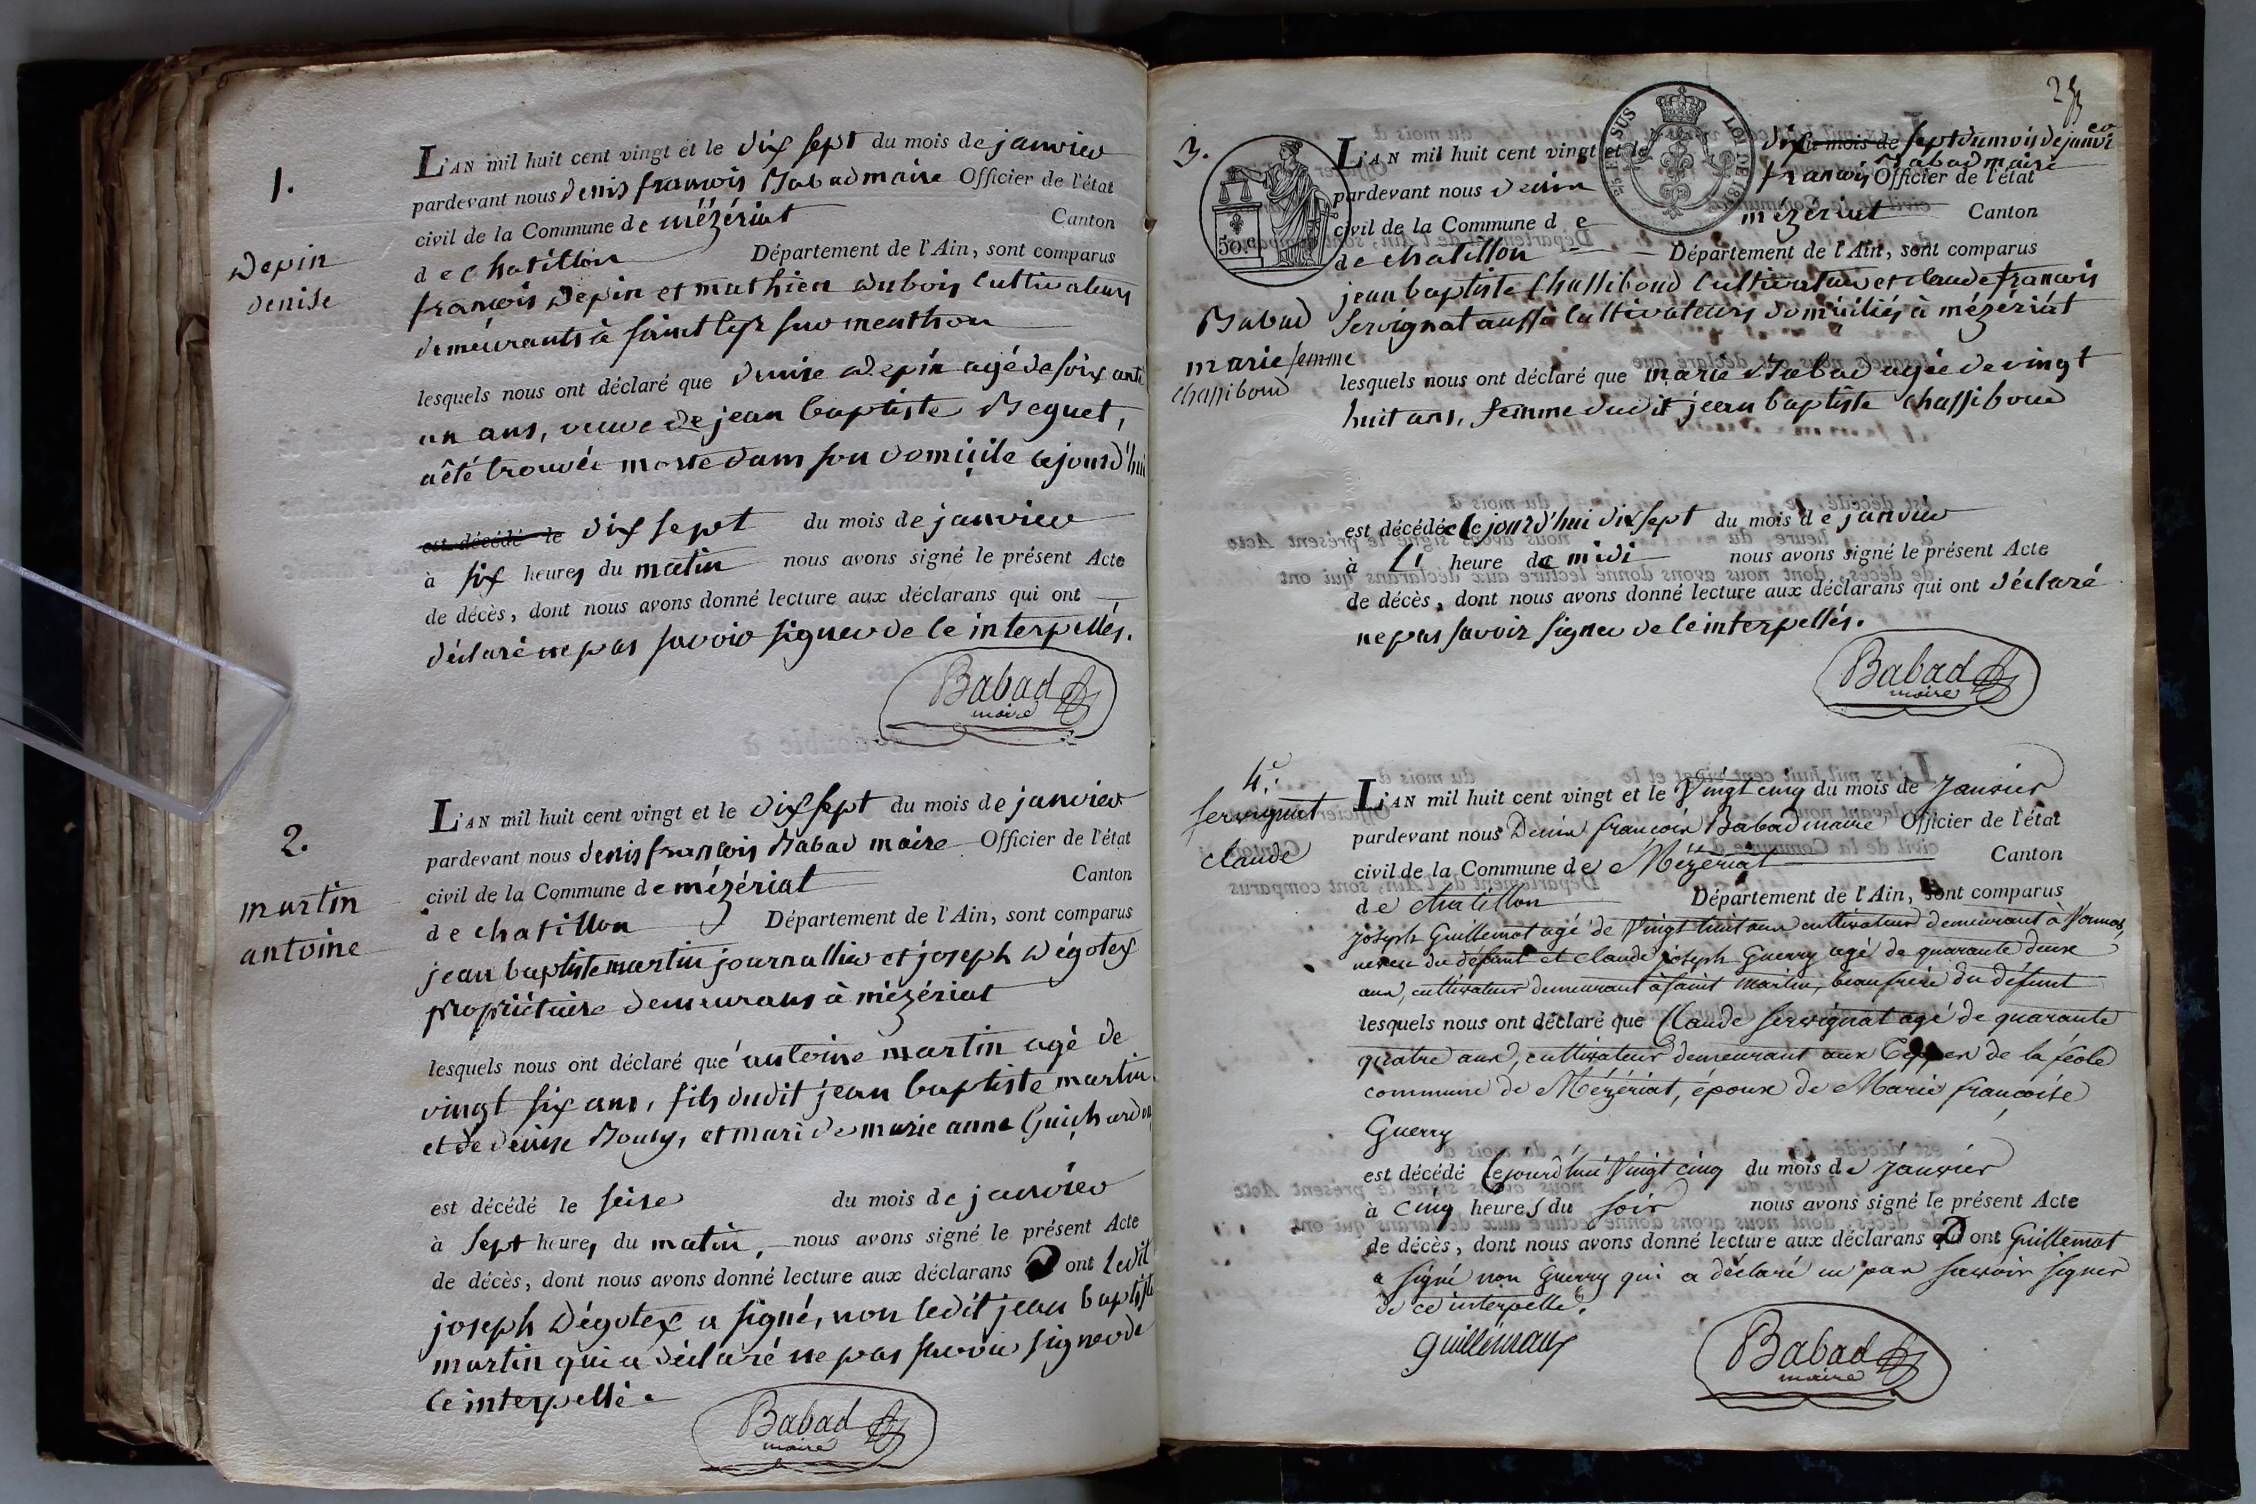 1.
Depin
denise
L'AN mil huit cent vingt et le dix sept du mois de janvier
pardevant nous denis françois Babad maire Officier de l'état
civil de la Commune de mézériat Canton
de chatillon Département de l'Ain, sont comparus
françois Depin et mathieu Dubois Cultivateurs
demeurants à saint Cyr sur menthon
lesquels nous ont déclaré que denise Depin agé de soixante
un ans, veuve de jean baptiste Beguet,
a été trouvée morte dans son domicile cejourd'hui
est décédé le dix sept du mois de janvier
à six heures du matin nous avons signé le présent Acte
de décès, dont nous avons donné lecture aux déclarans qui ont
déclaré ne pas savoir signer de ce interpellés.
Babad
maire
2.
martin
antoine
L'AN mil huit cent vingt et le dix sept du mois de janvier
pardevant nous denis françois Babad maire Officier de l'état
civil de la Commune de mézériat Canton
de chatillon Département de l'Ain, sont comparus
jean baptiste martin journallier et joseph Dégotex
propriétaire demeurans à mézériat
lesquels nous ont déclaré que antoine martin agé de
vingt six ans, fils dudit jean baptiste martin
et de denise Bouly, et mari de marie anne Guichardon
est décédé le seise du mois de janvier
à sept heures du matin, nous avons signé le présent Acte
de décès, dont nous avons donné lecture aux déclarans ont ledit
joseph Dégotex a signé, non ledit jean baptiste
martin qui a déclaré ne pas savoir signer de
ce interpellé.
Babad
maire
3.
Babad
marie femme
Chassiboud
50.c
SUS
LOI DE 18
L'AN mil huit cent vingt et le dix du mois de sept du mois de janvier
pardevant nous denis françois Babad maire Officier de l'état
civil de la Commune de mézeriat Canton
de chatillon Département de l'Ain, sont comparus
jean baptiste Chassiboud Cultivateur et claude françois
Servignat aussi Cultivateurs domiciliés à mézériat
lesquels nous ont déclaré que marie Babad agée de vingt
huit ans, femme dudit jean baptiste Chassiboud
est décédée cejourd'hui dix sept du mois de janvier
à heure de midi nous avons signé le présent Acte
de décès, dont nous avons donné lecture aux déclarans qui ont déclaré
ne pas savoir signer de ce interpellés.
Babad
maire
4.
Servignat
claude
L'AN mil huit cent vingt et le Vingt cinq du mois de Janvier
pardevant nous Denis françois Babad maire Officier de l'état
civil de la Commune de Mézériat Canton
de chatillon Département de l'Ain, sont comparus
joseph Guillemot agé de Vingt huit ans cultivateur demeurant à Vonnas,
neveu du défunt et claude joseph Guerry agé de quarante deux
ans, cultivateur demeurant à saint martin, beaufrère du défunt
lesquels nous ont déclaré que Claude Servignat agé de quarante
quatre ans, cultivateur demeurant aux de la féole
commune de Mézériat, époux de Marie françoise
Guerry
est décédé cejourd'hui Vingt cinq du mois de Janvier
à cinq heures du soir nous avons signé le présent Acte
de décès, dont nous avons donné lecture aux déclarans ont Guillemot
a signé non Guerry qui a déclaré ne pas savoir signer
de ce interpellé.
Babad
maire